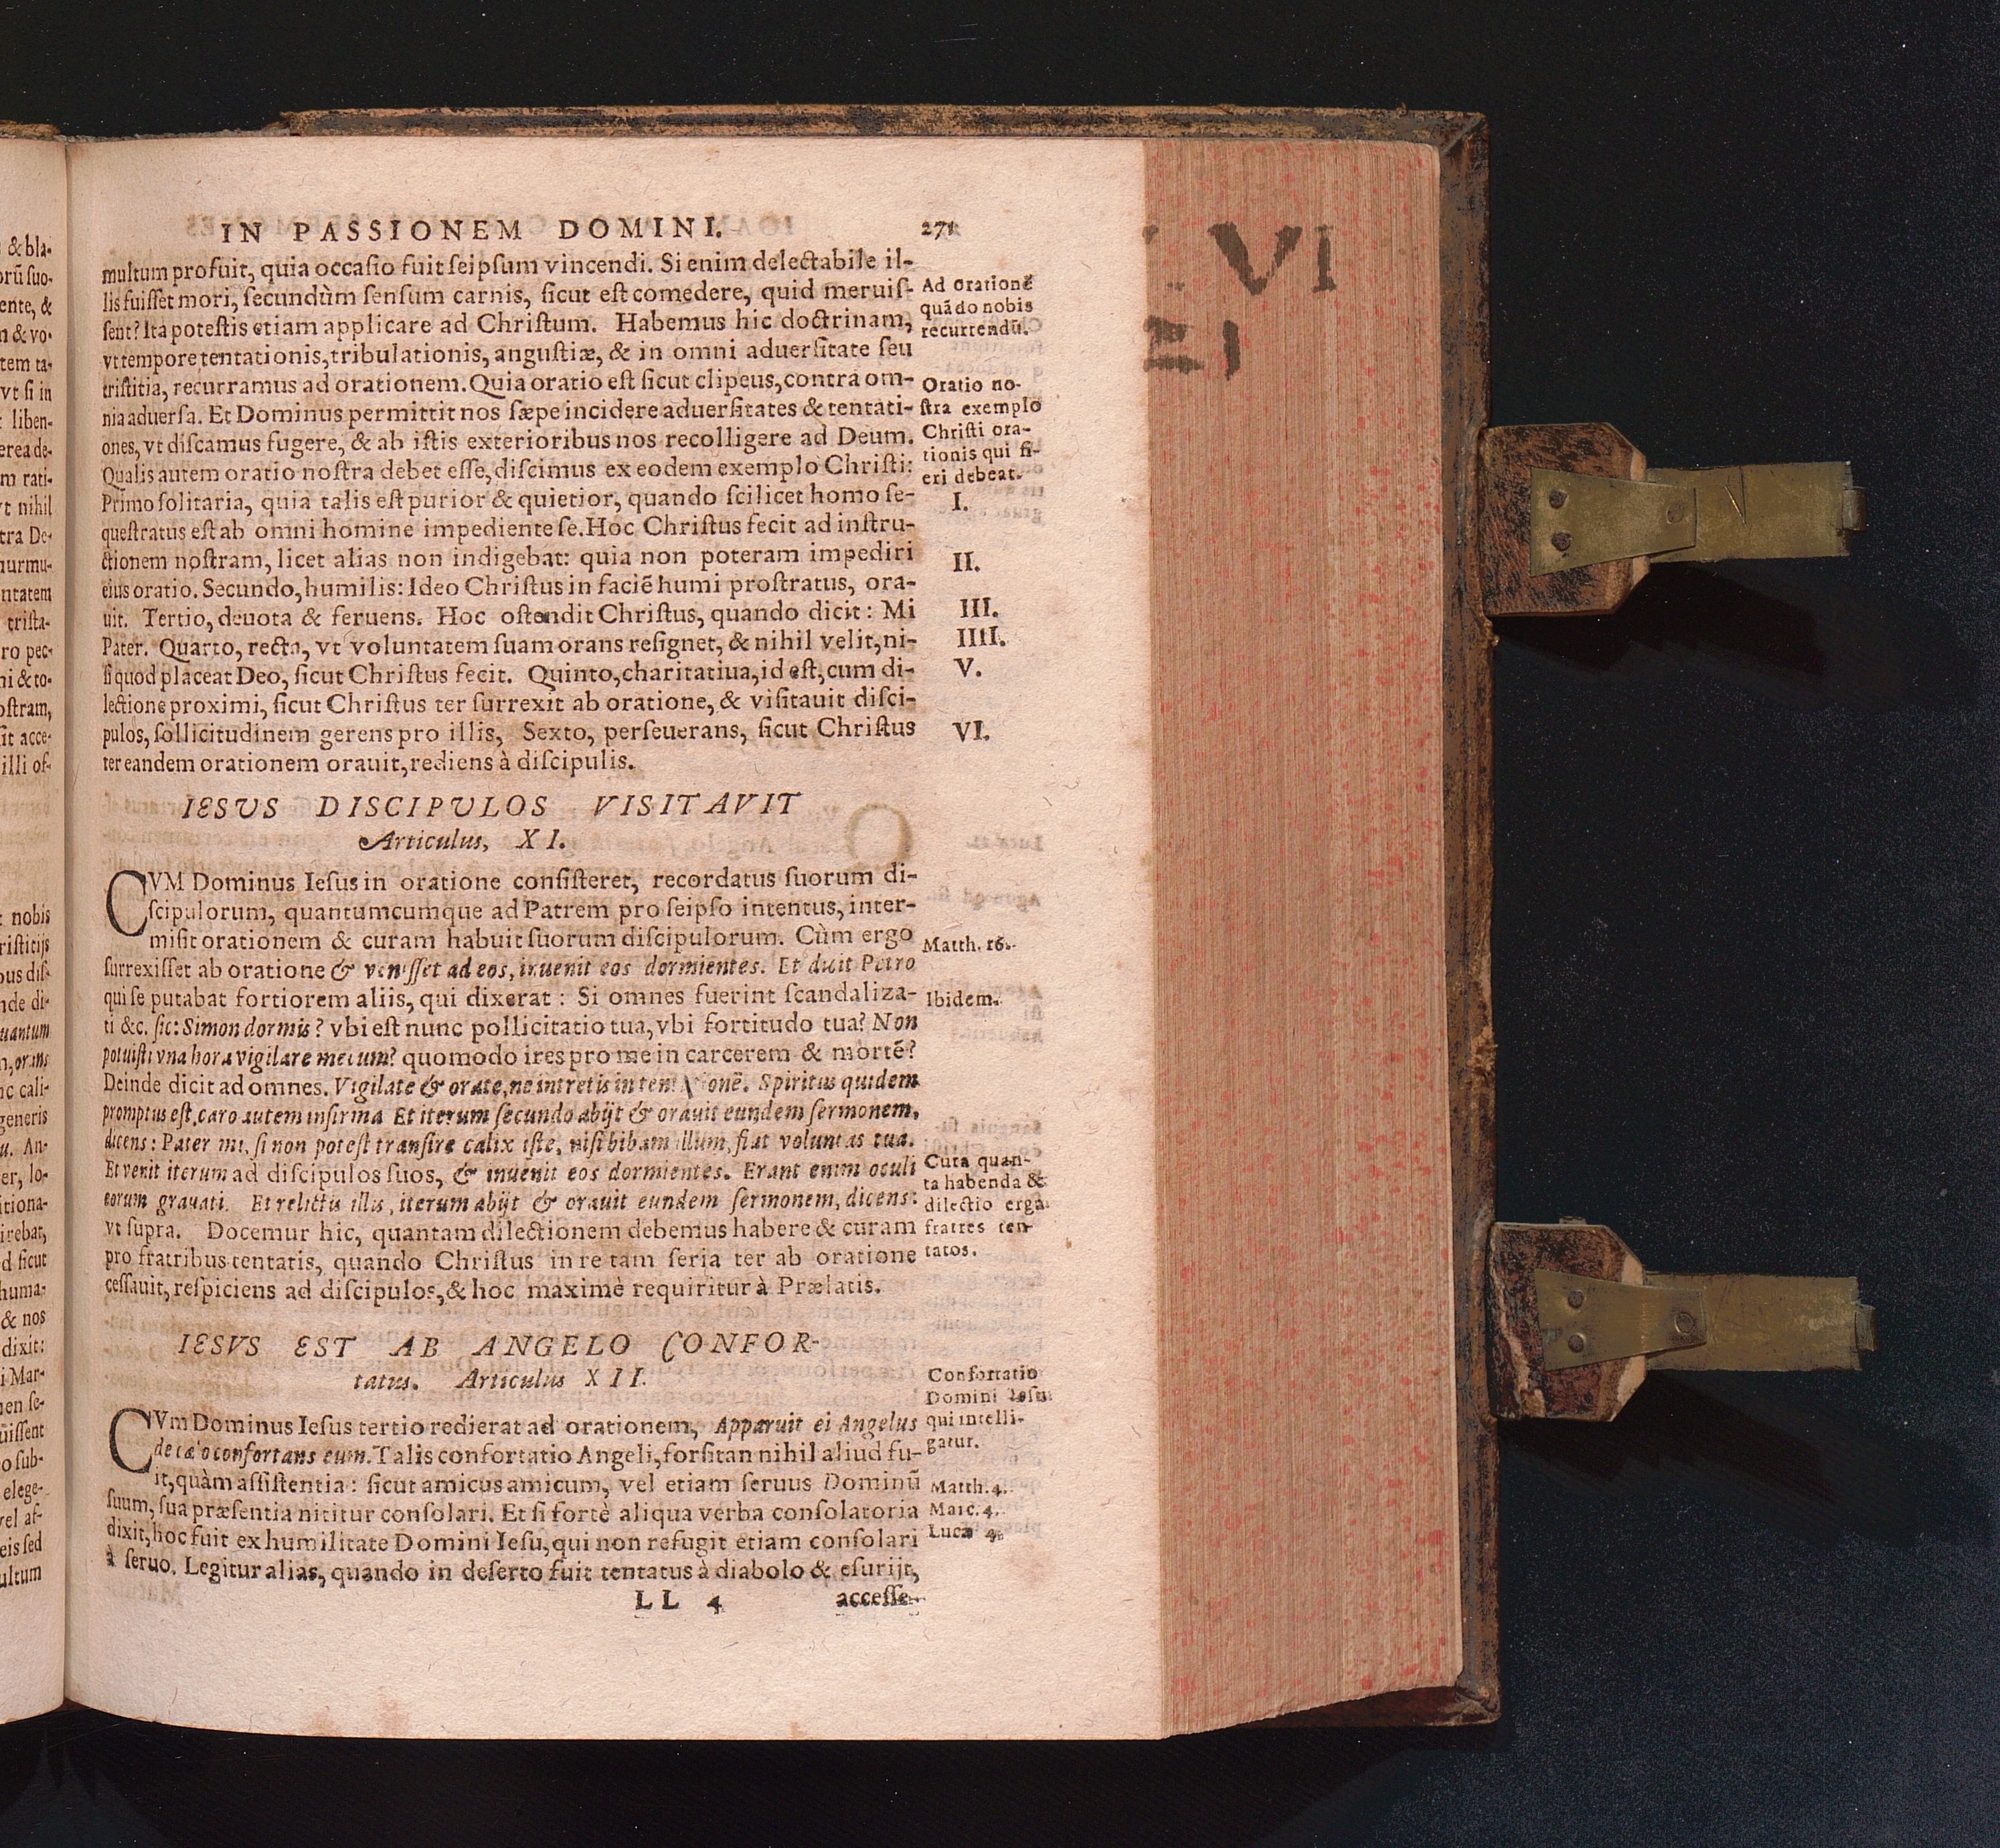 IN PASSIONEM DOMINI. 271
multum profuit, quia occasio fuit seipsum vincendi. Si enim delectabile il-
lis fuisset mori, secundùm sensum carnis, sicut est comedere, quid meruis-
sent? Ita potestis etiam applicare ad Christum. Habemus hic doctrinam,
vt tempore tentationis, tribulationis, angustiæ, & in omni aduersitate seu
tristitia, recurramus ad orationem. Quia oratio est sicut clipeus, contra om-
nia aduersa. Et Dominus permittit nos sæpe incidere aduersitates & tentati-
ones, vt discamus fugere, & ab istis exterioribus nos recolligere ad Deum.
Qualis autem oratio nostra debet esse, discimus ex eodem exemplo Christi:
Primo solitaria, quia talis est purior & quietior, quando scilicet homo se-
questratus est ab omni homine impediente se. Hoc Christus fecit ad instru-
ctionem nostram, licet alias non indigebat: quia non poteram impediri
eius oratio. Secundo, humilis: Ideo Christus in faciẽ humi prostratus, ora-
uit. Tertio, deuota & feruens. Hoc ostendit Christus, quando dicit: Mi
Pater. Quarto, recta, vt voluntatem suam orans resignet, & nihil velit, ni-
si quod placeat Deo, sicut Christus fecit. Quinto, charitatiua, id est, cum di-
lectione proximi, sicut Christus ter surrexit ab oratione, & visitauit disci-
pulos, sollicitudinem gerens pro illis, Sexto, perseuerans, sicut Christus
ter eandem orationem orauit, rediens à discipulis.
Ad orationẽ
quãdo nobis
recurrendũ.
Oratio no-
stra exemplo
Christi ora-
tionis qui fi-
eri debeat.
I.
II.
III.
IIII.
V.
VI.
IESUS DISCIPULOS VISITAVIT
Articulus, XI.
CVM Dominus Iesus in oratione consisteret, recordatus suorum di-
scipulorum, quantumcumque ad Patrem pro seipso intentus, inter-
misit orationem & curam habuit suorum discipulorum. Cùm ergo
surrexisset ab oratione & venisset ad eos, inuenit eos dormientes. Et dicit Petro
qui se putabat fortiorem aliis, qui dixerat: Si omnes fuerint scandaliza-
ti &c. sic: Simon dormis? vbi est nunc pollicitatio tua, vbi fortitudo tua? Non
potuisti vna hora vigilare mecum? quomodo ires pro me in carcerem & mortẽ?
Deinde dicit ad omnes. Vigilate & orate, ne intretis in Spiritus quidem
promptus est, caro autem infirma Et iterum secundo abijt & orauit eundem sermonem,
dicens: Pater mi, si non potest transire calix iste, nisi bibam illum, fiat voluntas tua.
Et venit iterum ad discipulos suos, & inuenit eos dormientes. Erant enim oculi
eorum grauati. Et relictis illis, iterum abijt & orauit eundem sermonem, dicens:
vt supra. Docemur hic, quantam dilectionem debemus habere & curam
pro fratribus tentatis, quando Christus in re tam seria ter ab oratione
cessauit, respiciens ad discipulos, & hoc maximè requiritur à Prælatis.
Matth. 26.
Ibidem.
Cura quan-
ta habenda &
dilectio erga
fratres ten-
tatos.
IESVS EST AB ANGELO CONFOR-
tatus. Articulus XII.
CVm Dominus Iesus tertio redierat ad orationem, Apparuit ei Angelus
de cælo confortans eum. Talis confortatio Angeli, forsitan nihil aliud fu-
it, quàm assistentia: sicut amicus amicum, vel etiam seruus Dominũ
suum, sua præsentia nititur consolari. Et si fortè aliqua verba consolatoria
dixit, hoc fuit ex humilitate Domini Iesu, qui non refugit etiam consolari
à seruo. Legitur alias, quando in deserto fuit tentatus à diabolo & esurijt,
Confortatio
Domini Iesu
qui intelli-
gatur.
Matth. 4.
Marc. 4.
Lucæ 4.
LL 4 accesse-
VI
EI